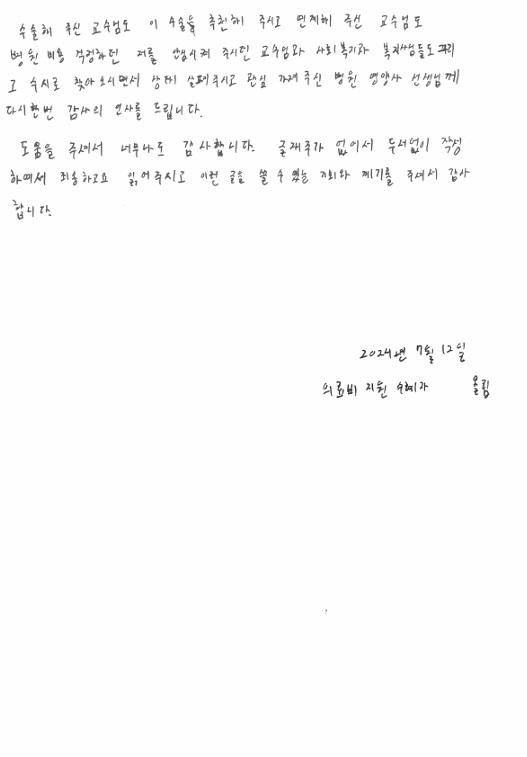 수술해 주신 교수님도 이 수술을 추천해 주시고 연계해 주신 교수님도
병원 비용 걱정하던 저를 안심시켜 주시던 교수님과 사회복지과 복지사님들도 그리
그 수시로 찾아오시면서 상태 살펴주시고 관심 가져주신 병원 영양사 선생님께
다시한번 감사의 인사를 드립니다.
도움을 주셔서 너무나도 감사합니다. 글재주가 없어서 두서없이 작성
하여서 죄송하고요 읽어주시고 이런 글을 쓸 수 있는 기회와 계기를 주셔서 감사
합니다.
2024년 7월 12일
의료비 지원 수혜자 올림